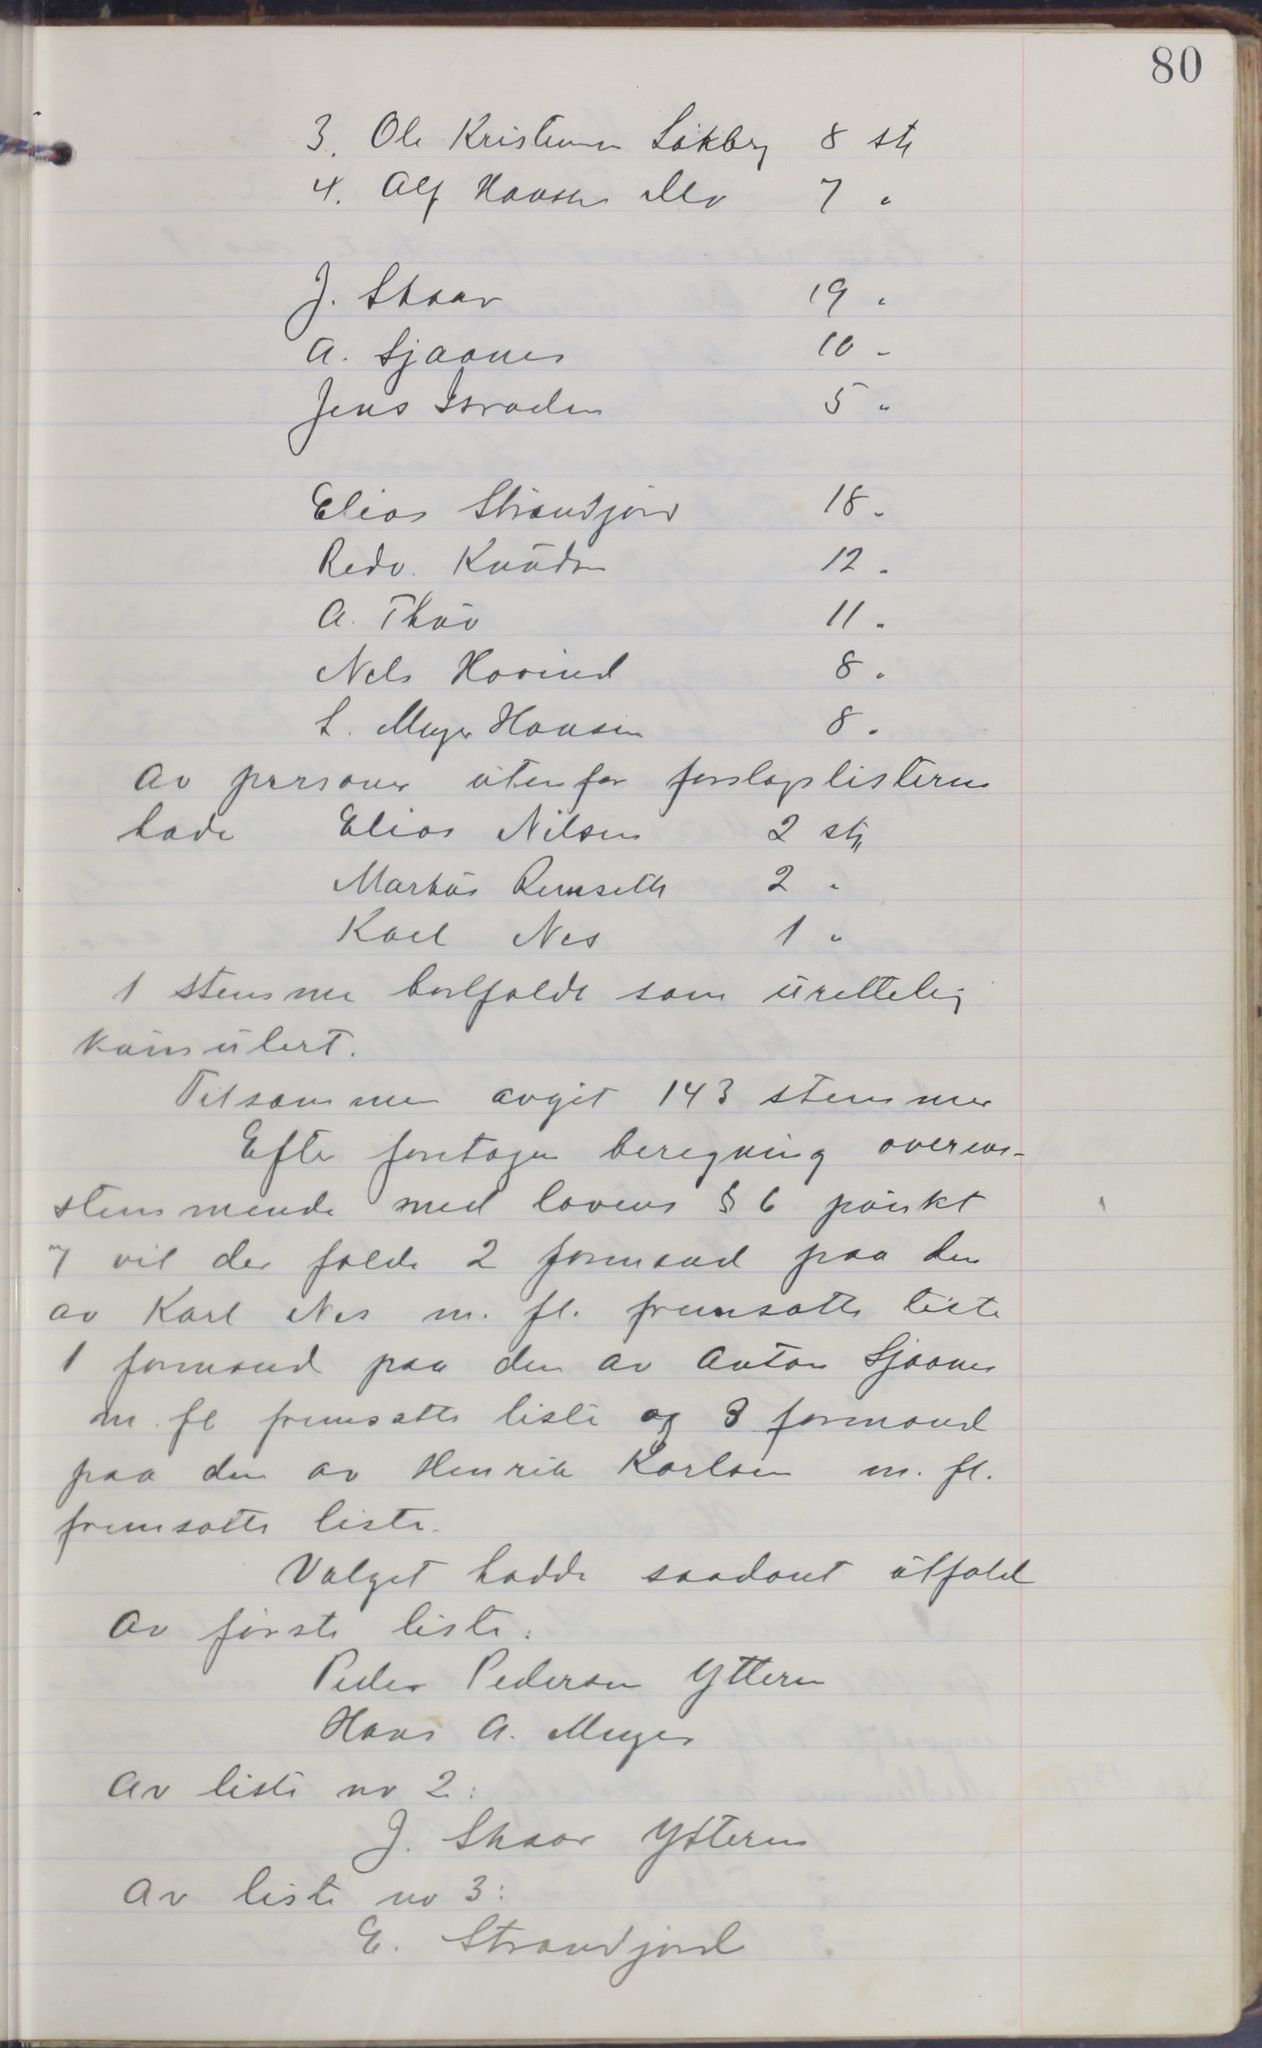 80
3. Ole Kristensen Søkberg 8 st
4. Alf Hansen Mo 7 "
J. Skaar 19 "
A. Sjaanes 10 "
Jens Israelsen 5 "
Elias Strandjord 18 "
Redv. Knudsen 12 "
A. Thuv 11 "
Nels Hovind 8 "
L. Meyer Hansen 8 "
Av personer utenfor forslagslisterne
hade Elias Nilsen 2 st
Markus Remseth 2 "
Karl Nes 1 "
1 stemme bortfaldt som urettelig
kumulert.
Tilsammen avgit 143 stemmer
Efter foretagen beregning overens-
stemmende med lovens § 6 punkt
7 vil der falde 2 formænd paa den
av Karl Nes m. fl. fremsatte liste
1 formand paa den av Anton Sjaanes
m. fl fremsatte liste og 3 formænd
paa den av Henrik Karlsen m. fl.
fremsatte liste.
Valget hadde saadant utfald
Av første liste:
Peder Pedersen Ytteren
Hans A. Meyer
Av liste no 2:
J. Skaar Ytteren
Av liste no 3:
E. Strandjord